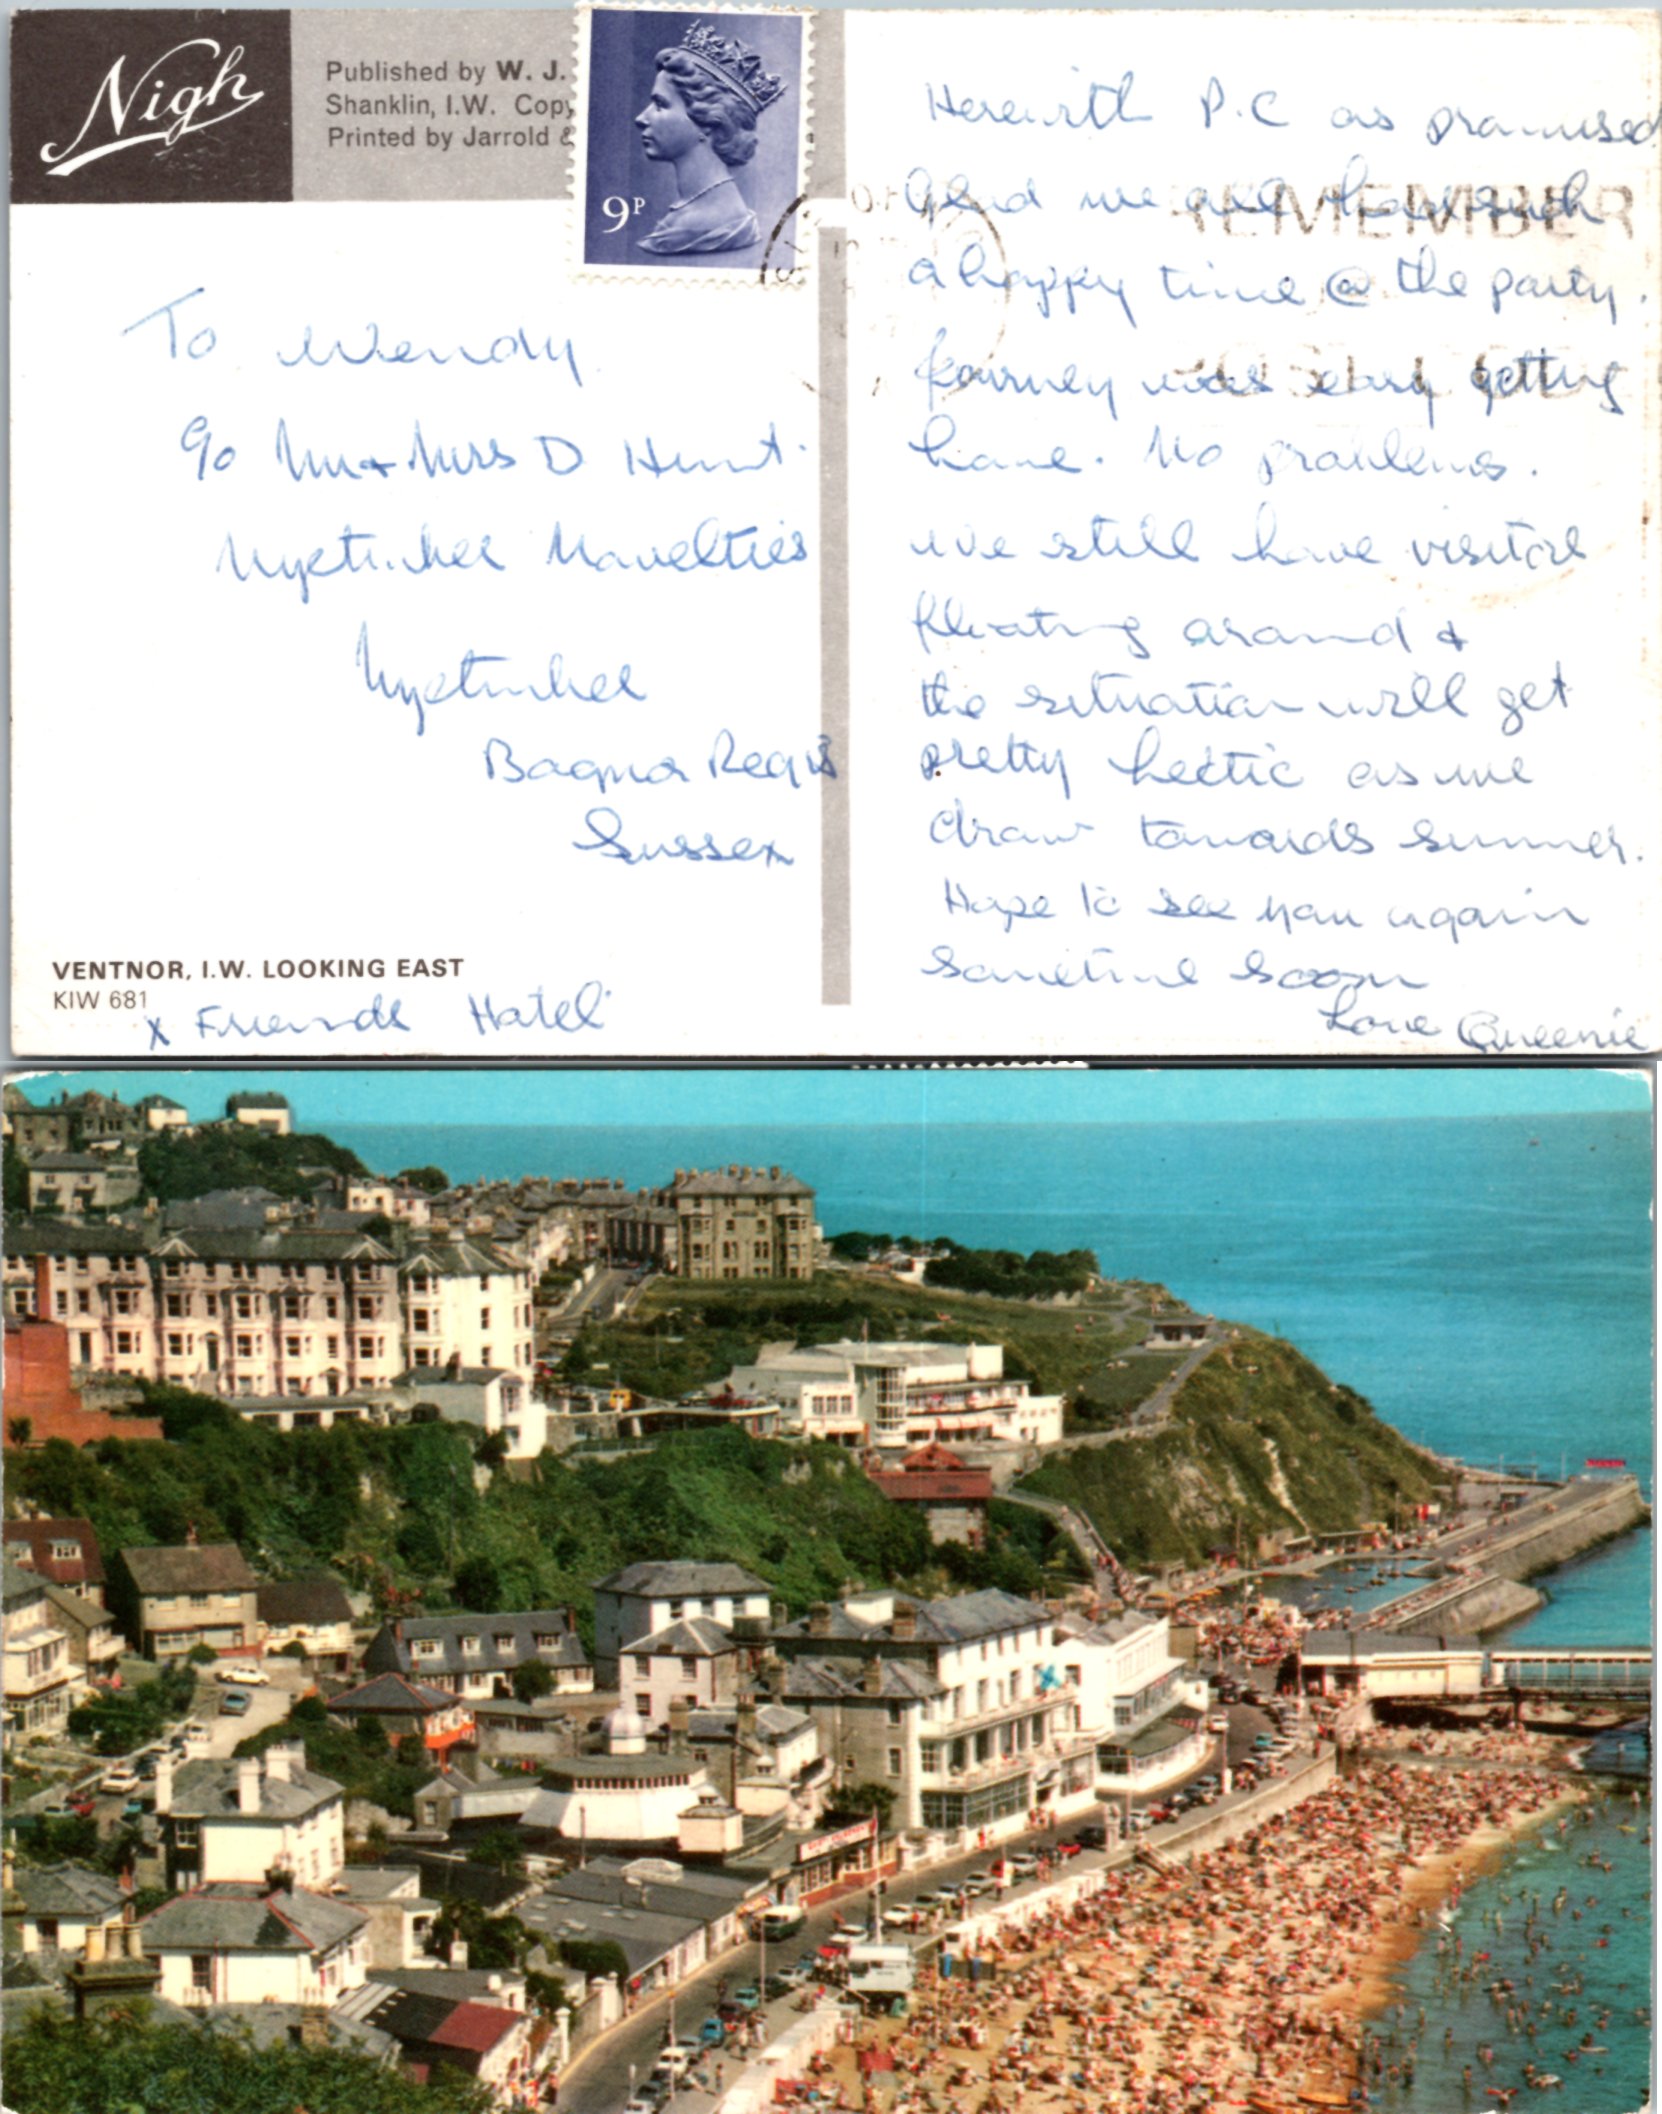 Nigh
Published by W. J.
Shanklin, I.W. Copy
Printed by Jarrold &
9P
REMEMBER
To Wendy
c/o Mr + Mrs D Hunt.
Nyetimber Novelties
Nyetimber
Bognor Regis
Sussex
VENTNOR, I.W. LOOKING EAST
KIW 681
x Friends Hotel
Herewith P.C as promised
Glad we all had such
a happy time @ the party.
Journey was easy getting
home. No problems.
We still have visitors
floating around &
the situation will get
pretty hectic as we
draw towards summer.
Hope to see you again
sometime soon
Love Queenie